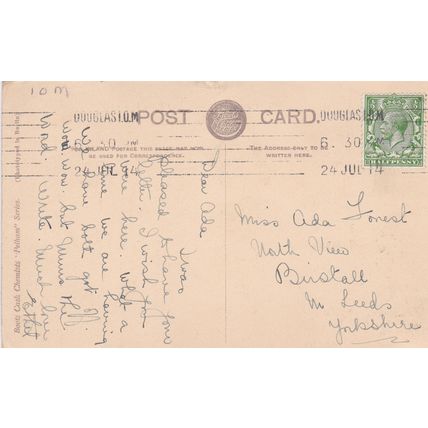 10 M
DOUGLAS I.O.M
6. 30 PM
24 JUL 14
POST CARD.
DOUGLAS I.O.M.
6. 30
24 JUL 14
INLAND POSTAGE THIS SPACE MAY NOW
BE USED FOR CORRESPONDENCE.
THE ADDRESS ONLY TO BE
WRITTEN HERE.
HALFPENNY
Dear Ada
I was
pleased to have your
letter. I wish you
were here. What a
time we are having
We have both got off
now, but Mums the
Word. Write. Much love
Ethel
Miss Ada Forest
North View
Birstall
Nr Leeds
Yorkshire
Boots Cash Chemists "Pelham" Series.